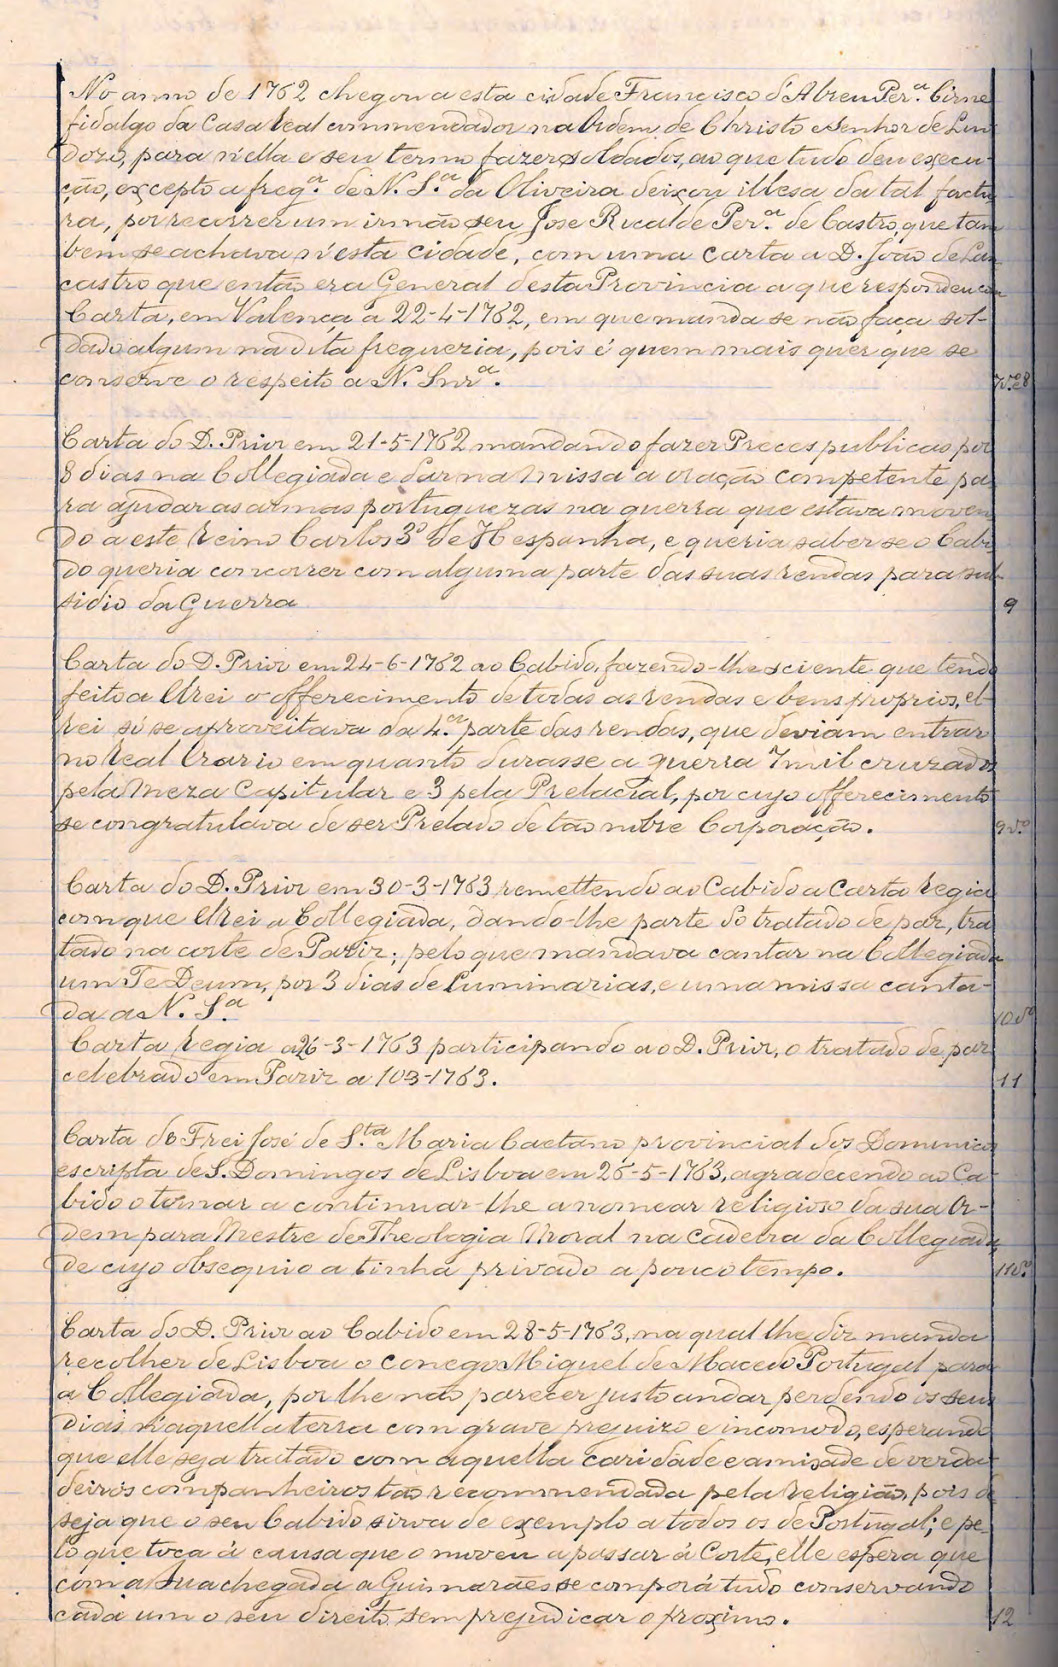 No anno de 1762 chegou a esta cidade Francisco d'Abreu Per.ª Cirne
fidalgo da Casa Real commendador na Ordem de Christo e Senhor de Lin
dozo, para n'ella e seu termo fazer soldados, ao que tudo deu execu-
ção, excepto a freg.ª de N. S.ª da Oliveira deixou illesa da tal factu
ra, por recorrer um irmão seu Jose Ricalde Per.ª de Castro, que tam
bem se achava n'esta cidade, com uma carta a D. João de Lan
castro que então era General desta Provincia a que respondeu com
Carta, em Valença a 22-4-1762, em que manda se não faça sol-
dado algum na dita freguezia, pois é quem mais quer que se
conserve o respeito a N. Snrª. 7v.e8
Carta do D. Prior em 21-5-1762 mandando fazer Preces publicas por
8 dias na Collegiada e dar na Missa a oração competente pa
ra ajudar as armas portuguezas na guerra que estava moven
do a este Reino Carlos 3º de Hespanha, e queria saber se o Cabi
do queria concorrer com alguma parte das suas rendas para sub
sidio da Guerra 9
Carta do D. Prior em 24-6-1762 ao Cabido, fazendo-lhe sciente que tendo
feito a Elrei o offerecimento de todas as rendas e bens proprios, el-
rei só se aproveitava da 4.ª parte das rendas, que deviam entrar
no Real Erario em quanto durasse a guerra 7 mil cruzados
pela Meza Capitular e 3 pela Prelacial, por cujo offerecimento
se congratulava de ser Prelado de tão nobre Corporação. 9vº
Carta do D. Prior em 30-3-1763 remettendo ao Cabido a Carta Regia
com que Elrei a Collegiada, dando-lhe parte do tratado de paz, tra
tado na corte de Pariz; pelo que mandava cantar na Collegiada
um Te Deum, por 3 dias de Luminarias, e uma missa canta-
da a N. S.ª 10vº
Carta Regia a 26-3-1763 participando ao D. Prior, o tratado de paz
celebrado em Pariz a 10-3-1763. 11
Carta de Frei José de S.ta Maria Caetano provincial dos Dominicos
escripta de S. Domingos de Lisboa em 26-5-1763, agradecendo ao Ca-
bido o tornar a continuar-lhe a nomear religioso da sua Or-
dem para Mestre de Theologia Moral na cadeira da Collegiada
de cujo obsequio a tinha privado a pouco tempo. 11vº
Carta do D. Prior ao Cabido em 28-5-1763, na qual lhe diz manda
recolher de Lisboa o conego Miguel de Macedo Portugal para
a Collegiada, por lhe não parecer justo andar perdendo os seus
dias n'aquella terra com grave prejuizo e incomodo, esperando
que elle seja tratado com aquella caridade e amisade de verda-
deiros companheiros tão recommendada pela Religião, pois de
seja que o seu Cabido sirva de exemplo a todos os de Portugal; e pe-
lo que toca á causa que o moveu a passar á Corte, elle espera que
com a sua chegada a Guimarães se comporá tudo conservando
cada um o seu direito sem prejudicar o proximo. 12